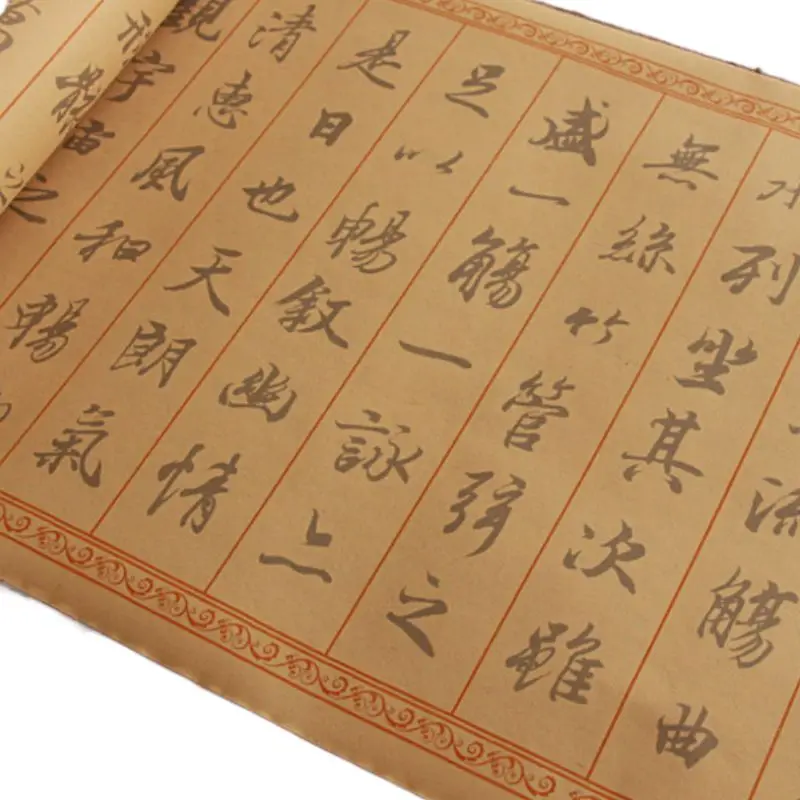 流觴曲
列坐其次雖
無絲竹管弦之
盛一觴一詠亦
足以暢敘幽情
是日也天朗氣
清惠風和暢
觀宇宙之